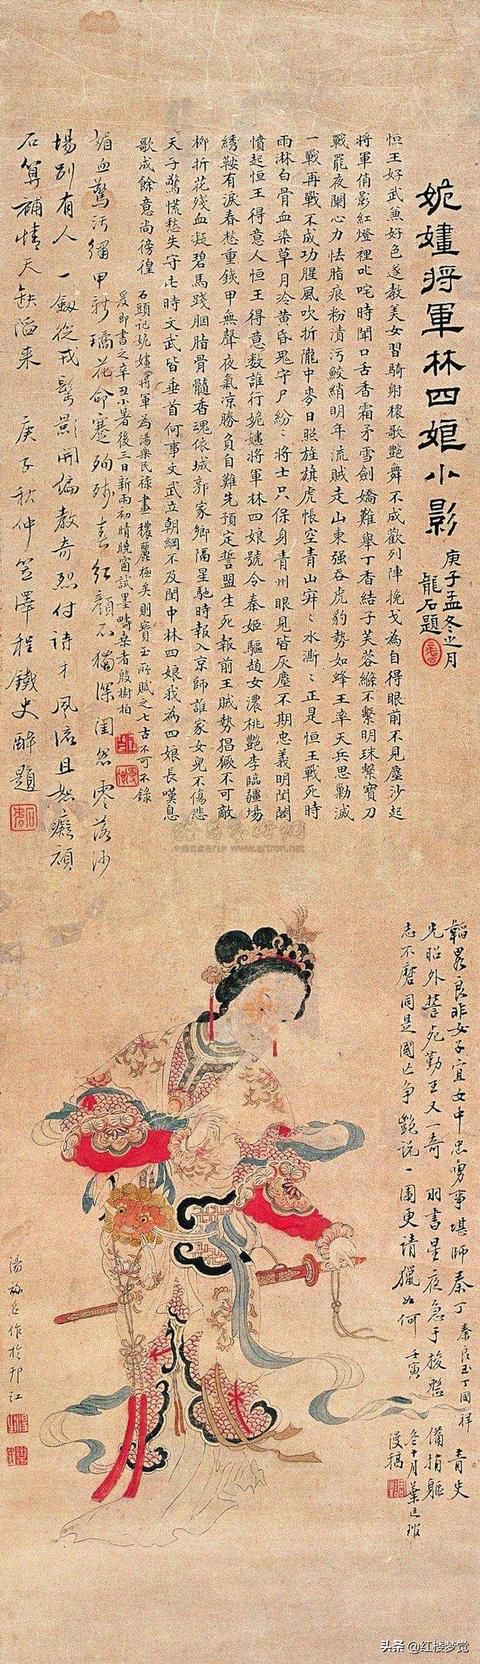 姽嫿將軍林四娘小影
庚子孟冬之月
龍石題
恒王好武兼好色遂教美女習騎射穠歌艷舞不成歡列陣挽戈為自得眼前不見塵沙起
將軍俏影紅燈裡叱咤時聞口舌香霜矛雪劍嬌難舉丁香結子芙蓉縧不繫明珠繫寶刀
戰罷夜闌心力怯脂痕粉漬污鮫綃明年流賊走山東強吞虎豹勢如蜂王率天兵思勦滅
一戰再戰不成功腥風吹折隴中麥日照旌旗虎帳空青山寂〻水澌〻正是恒王戰死時
雨淋白骨血染草月冷黃昏鬼守尸紛〻將士只保身青州眼見皆灰塵不期忠義明閨閣
憤起恒王得意人恒王得意數誰行姽嫿將軍林四娘號令秦姬驅趙女濃桃艷李臨疆場
綉鞍有淚春愁重鐵甲無聲夜氣涼勝負自難先預定誓盟生死報前王賊勢猖獗不可敵
柳折花殘血凝碧馬踐胭脂骨髓香魂依城郭家鄉隔星馳時報入京師誰家女兒不傷悲
天子驚慌愁失守此時文武皆垂首何事文武立朝綱不及閨中林四娘我為四娘長嘆息
歌成餘意尚徬徨
石頭記姽嫿將軍為湯樂民祿畫穠麗極矣則寶玉所賦之七古不可不錄
爰即書之辛丑小暑後三日新雨初晴晚窗試墨疇桑者殷樹柏
媚血驚污繡甲新璚花命蹇殉殘春紅顏不獨深閨怨零落沙
場別有人一劔從戎髩影開偏教奇烈付詩才風流且恕癡頑
石算補情天缺陷來
庚子秋仲笠澤程鐵史醉題
韜畧良非女子宜女中忠勇事堪師秦丁
秦良玉丁國祥
青史
光昭外誓死勤王又一奇
羽書星夜急于援慗備捐軀
志不磨同是國亡爭艷說一圍更請獵如何
壬寅
冬十月葉廷琯
漫稿
湯祿名作於邗江
雅昌藝術網
www.artron.net
头条 @红楼梦觉